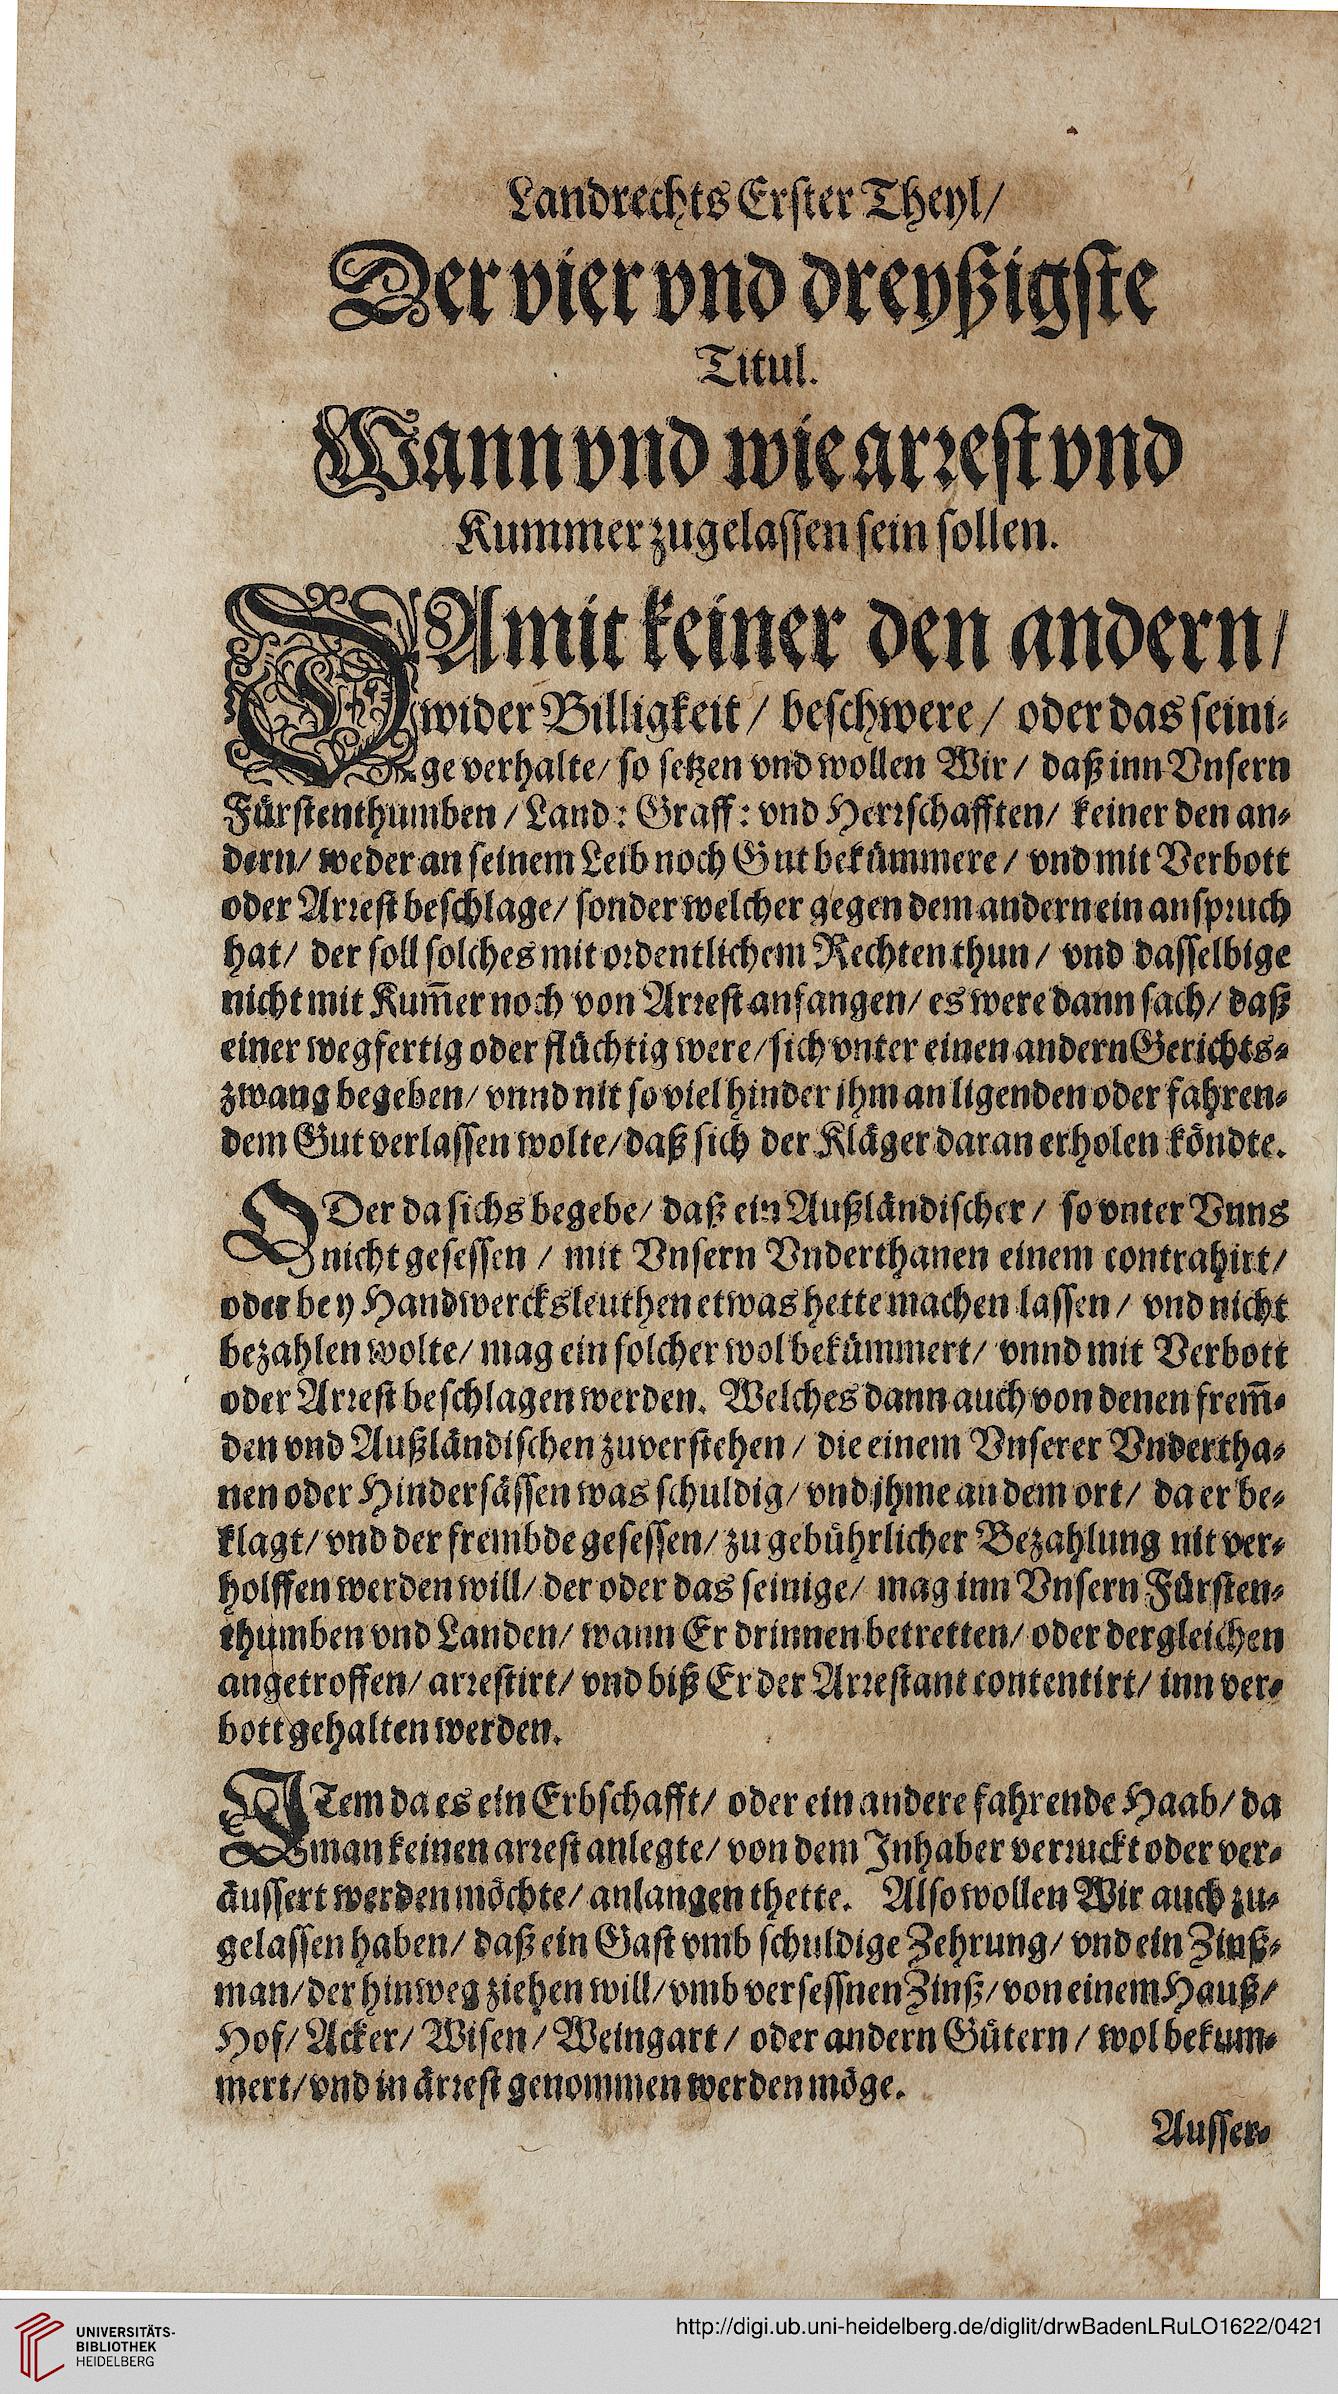 Landrechts Erster Theyl/
Der vier vnd dreyßigste
Titul.
Wann vnd wie arrest vnd
Kummer zugelassen sein sollen.
DAmit keiner den andern/
wider Billigkeit/ beschwere/ oder das seini-
ge verhalte/ so setzen vnd wollen Wir/ daß inn Vnsern
Fürstenthumben/ Land: Graff: vnd Herrschafften/ keiner den an-
dern/ weder an seinem Leib noch Gut bekümmere/ vnd mit Verbott
oder Arrest beschlage/ sonder welcher gegen dem andern ein anspruch
hat/ der soll solches mit ordentlichem Rechten thun/ vnd dasselbige
nicht mit Kum̄er noch von Arrest anfangen/ es were dann sach/ daß
einer wegfertig oder flüchtig were/ sich vnter einen andern Gerichts-
zwang begeben/ vnnd nit so viel hinder ihm an ligenden oder fahren-
dem Gut verlassen wolte/ daß sich der Kläger daran erholen köndte.
ODer da sichs begebe/ daß ein Außländischer/ so vnter Vnns
nicht gesessen/ mit Vnsern Vnderthanen einem contrahirt/
oder bey Handwercksleuthen etwas hette machen lassen/ vnd nicht
bezahlen wolte/ mag ein solcher wol bekümmert/ vnnd mit Verbott
oder Arrest beschlagen werden. Welches dann auch von denen frem̄-
den vnd Außländischen zuverstehen/ die einem Vnserer Vndertha-
nen oder Hindersässen was schuldig/ vnd ihme an dem ort/ da er be-
klagt/ vnd der frembde gesessen/ zu gebührlicher Bezahlung nit ver-
holffen werden will/ der oder das seinige/ mag inn Vnsern Fürsten-
thumben vnd Landen/ wann Er drinnen betretten/ oder dergleichen
angetroffen/ arrestirt/ vnd biß Er der Arrestant contentirt/ inn ver-
bott gehalten werden.
ITem da es ein Erbschafft/ oder ein andere fahrende Haab/ da
man keinen arrest anlegte/ von dem Inhaber verruckt oder ver-
äussert werden möchte/ anlangen thette. Also wollen Wir auch zu-
gelassen haben/ daß ein Gast vmb schuldige Zehrung/ vnd ein Zinß-
man/ der hinweg ziehen will/ vmb versessnen Zinß/ von einem Hauß/
Hof/ Acker/ Wisen/ Weingart/ oder andern Gütern/ wol bekum-
mert/ vnd in ärrest genommen werden möge.
Ausser-
UNIVERSITÄTS-
BIBLIOTHEK
HEIDELBERG
http://digi.ub.uni-heidelberg.de/diglit/drwBadenLRuLO1622/0421